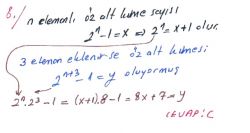 8./ n elemanlı öz alt küme sayısı
2ⁿ-1=x ⇒ 2ⁿ=x+1 olur.
3 eleman eklenirse öz alt kümesi
2ⁿ⁺³-1=y oluyormuş
2ⁿ.2³-1=(x+1).8-1=8x+7=y
CEVAP: C